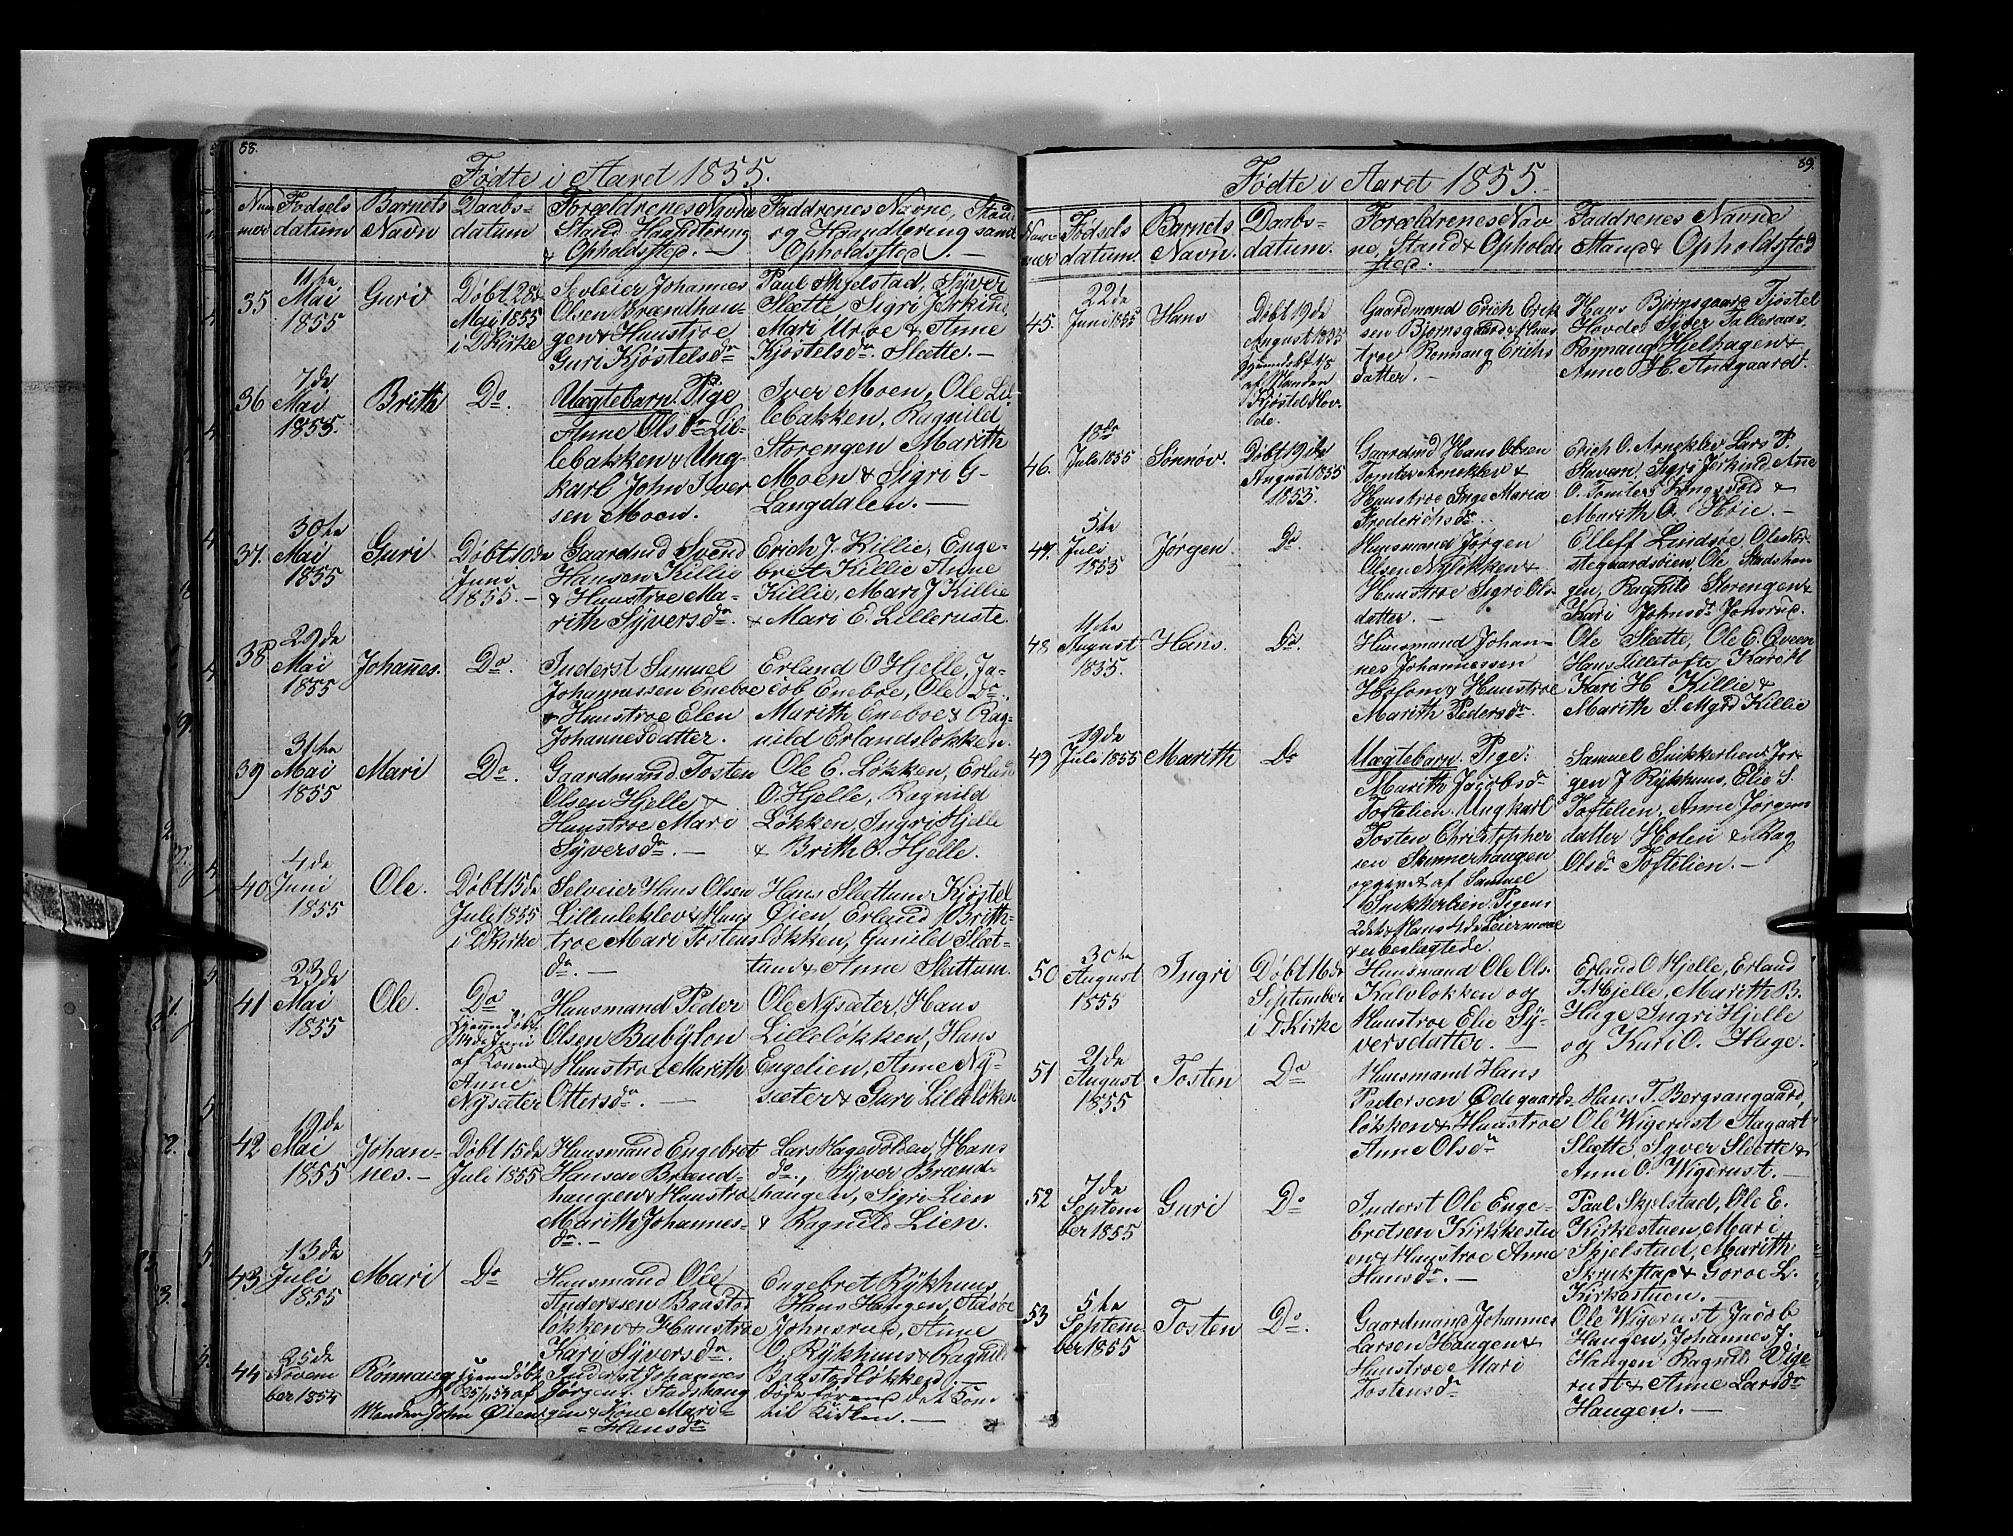 88.
Fødte i Aaret 1855.
Num
mer
Fødsels
datum
Barnets
Navn
Daabs-
datum
Forældrenes Navne
Stand Haandtering
& Opholdssted. —
Faddrenes Navne, Stand
og Haandtering samt
Opholdssted. —
35
Mai
1855
Guri
Døbt 28de
Mai 1855
i D Kirke
Selveier Johannes
Olsen Brændhau-
gen & Hustroe
Guri Kjøstelsdr
Paul Skjelstad, Syver
Slætte, Sigri Jørkind
Mari Uroe & Anne
Kjøstelsdr. Slætte. —
36
7de
Mai
1855.
Brith
Do.
Uægtebarn. Pige
Anne Olsdr Lil-
lebakken & Ung-
karl John Iver
sen Moen.
Iver Moen, Ole Lil-
lebakken, Ragnild
Storengen Marith
Moen & Sigri G-
Langdalen. —
37.
30te
Mai
1855
Guri
Døbt 10de
Juni
1855. —
Gaardmd Svend
Hansen Killie
& Hustroe Ma-
rith Syversdr.
Erich J. Killie, Enge-
bret Killie Anne
Killie, Mari J Killie
& Mari E. Lilleruste.
38
29de
Mai
1855
Johañes.
Do.
Inderst Samuel
Johannessen Eneboe
& Hustroe Elen
Johannesdatter.
Erland O Hjelle, Ja-
cob Eneboe, Ole Do.
Marith Eneboe & Rag-
nild Erlandsløkken.
39
31te
Mai
1855
Mari
Do.
Gaardmand Tosten
Olsen Hjelle &
Hustroe Mari
Syversdr. —
Ole E. Løkken, Erland
O. Hjelle, Ragnild
Løkken, Ingri Hjelle
& Brith O. Hjelle.
40
4de
Juni
1855
Ole.
Døbt 15de
Juli 1855
i D Kirke
Selveier Hans Olsen
Lilleuleklev & Hus-
troe Mari Tostens
dr. —
Hans Slettum Kjøstel
Øien, Erland Brith-
løkken, Gunild Slæt-
tum & Anne Slettum.
41
23de
Mai
1855
Ole.
Do
Hjemmedøbt
14de Juni
af Konen
Anne
Nysæter
Huusmand Peder
Olsen Babylon
& Hustroe Marith
Ottersdr. —
Ole Nysæter, Hans
Lilleløkken, Hans
Engelien, Anne Ny-
sæter & Guri Lilleløkken
42
19de
Mai
1855
Johan-
nes. —
Døbt 15de
Juli 1855
Huusmand Engebret
Hansen Brænd-
haugen & Hustroe
Marith Johannes-
dr. —
Lars Hagevolden, Hans
do., Syver Brænd-
haugen, Sigri Lien
& Ragnild Lien.
43
13de
Juli
1855
Mari
Do
Huusmand Ole
Anderssen Baastad
løkken & Hustroe
Kari Syversdr.
Engebret Rykhuus
Hans Haugen,
Johnsrud, Anne
O. Rykhuus & Ragnild
Badstadløkken.
44
25de
Novem
ber 1854
Rønnaug
hjemdøbt
af
Manden John Øien
Inderst Johannes
Jørgens. Stadshaug
gen & Kone Mari
Hansdr
Døde førend det kom
til Kirken. —
89.
Fødte i Aaret 1855.
Num-
mer
Fødsels
datum.
Barnets
Navn.
Daabs-
datum.
Forældrenes Nav-
ne, Stand & Opholds
sted.
Faddrenes Navne
Stand & Opholdssted
45.
22de
Juni 1855
Hans
Døbt 19de
August 1855
hjemdøbt
af Manden
Kjøstel Hov-
de.
Gaardmand Erich Erik
sen Bjørnsgaard & Huus
troe Rønnang Erichs
datter. —
Hans Bjørnsgaard Tjøstel
Hovde, Syver Talleraas.
Rønnaug Hielhagen &
Anne H. Andgaard.
46.
18de
Juli 1855
Sønnøv.
Døbt 19de
August 1855
1855.
Gaardmd Hans Olsen
Tomter Arneklev &
Hustroe Inge Maria
Frederichsdr.
Erich O. Arneklev Lars P.
Stavem, Sigri Jørkind Añe
O. Tomter &
Marith O. Hoie. —
47.
5te
Juli
1855
Jørgen.
Do.
Huusmand Jørgen
Olsen Nyløkken &
Hustroe Sigri Ols-
datter. —
Elleff Lindsøe Ole
stegaardsøien, Ole Stadshau
gen, Raghild Storengen &
Kari Johnsdr Jonsrud.
48
11te
August
1855.
Hans.
Do.
Huusmand Johan-
nes Johannessen
Holom & Hustroe
Marith Pedersdr.
Ole Slætte, Ole E. Qveen
Hans Lilletofte
Kari H Killie &
Marith S. Myrd Killie
49
19de
Juli 1855
Marith
Do
Uægtebarn. Pige:
Marith Jacobsdr
Toftelien. Ungkarl
Tosten Christopher
sen Skinnerhaugen
opgivet af Samuel
Snikkerlien. Pigens
2det & Hans 4de Leiermaal
& ei beslægtede.
Samuel Snikkerlien, Jør-
gen J Rykhuus, Elie S.
Toftelien, Anne Jørgens
datter Holen & Rag
Olsdr Toftelien. —
50
30te
August
1855
Ingri
Døbt 16de
September
i D Kirke
Huusmand Ole Ols.
Kalvløkken og
Hustroe Elie Sy-
versdatter. —
Erland O Hjelle, Erland
T. Hjelle, Marith B.
Hage Ingri Hjelle
og Kari O. Hage.
51
21de
August
1855
Tosten
Do
Huusmand Hans
Pedersen Ødegaards
løkken & Hustroe
Anne Olsdr
Hans T. Bergsangaard,
Ole Wigerust Aagaat
Slætte, Syver Slætte &
Anne O. Wigerust. —
52
7de
Septem
ber 1855
Guri
Do
Inderst Ole Enge-
bretsen Kirkkestu
en & Hustroe Anne
Hansdr. —
Paul Skjelstad, Ole E.
Kirkestuen Mari
Skjelstad, Marith
Skrukstad & Goroe L.
Kirkestuen. —
53
5te
Septem
ber 1855
Tosten
Do.
Gaardmand Johannes
Larsen Haugen &
Hustroe Mari
Tostensdr
Ole Wigerust Jacob
Haugen, Johannes J.
Haugen Ragnild Vige-
rust & Anne Larsdr
Haugen. —